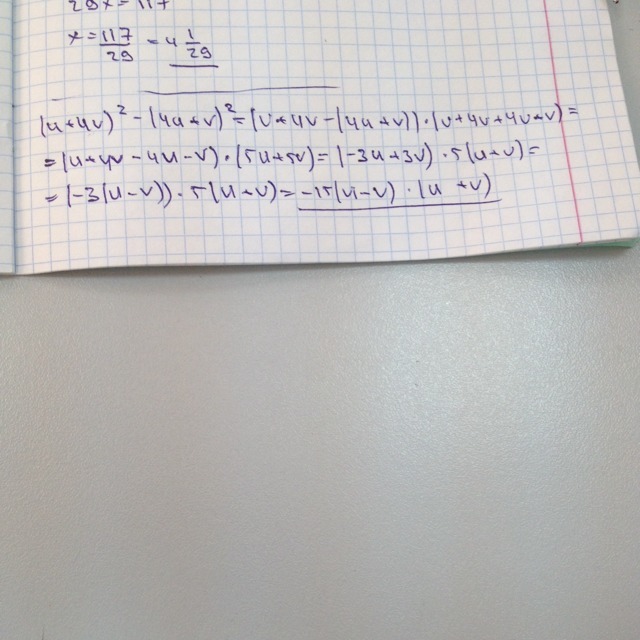 29x = 117
x = 117/29 = 4 1/29
(u+4v)² - (4u+v)² = (u+4v-(4u+v))·(u+4v+4u+v) =
= (u+4v-4u-v)·(5u+5v) = (-3u+3v)·5(u+v) =
= (-3(u-v))·5(u+v) = -15(u-v)·(u+v)